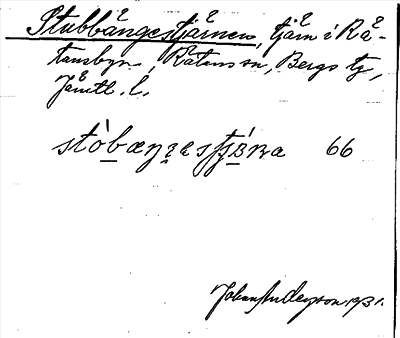 Stubbängestjärnen, tjärn i Rä-
tansbyn, Rätans sn, Bergs tg,
Jämtl. l.
stòbæŋɛstjɛ̀ṇa 66
Johan Anderson 1931.